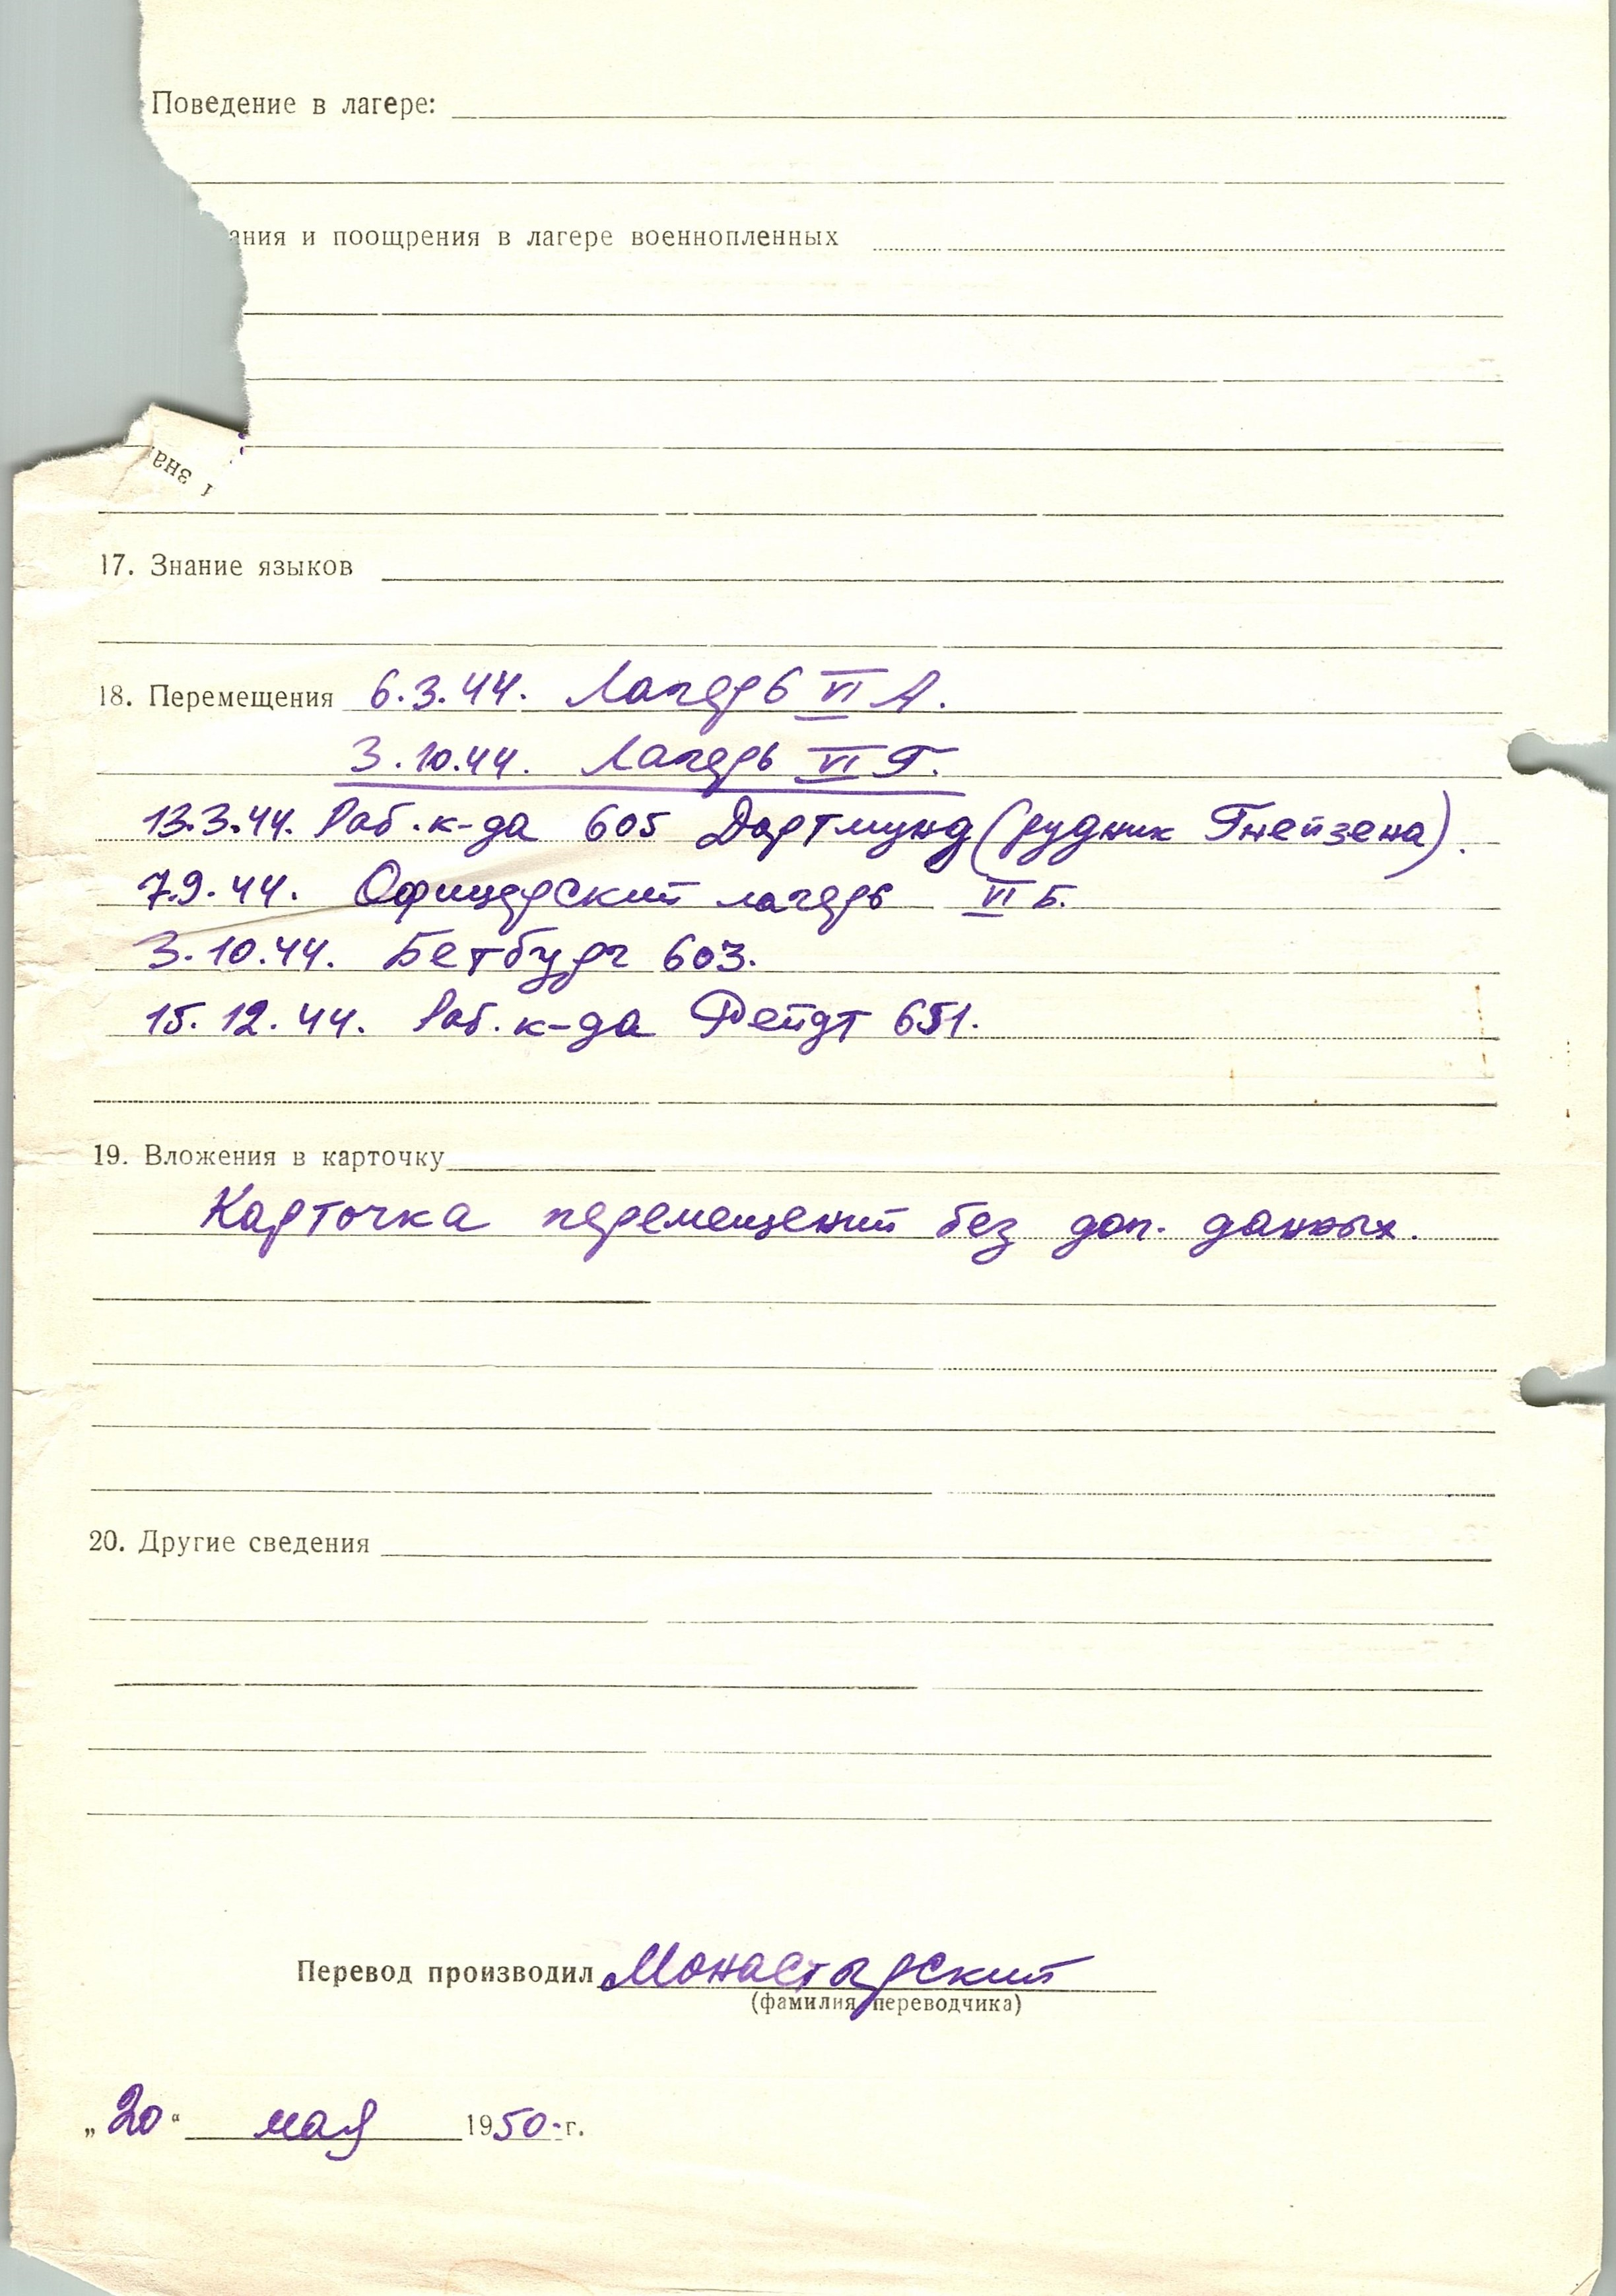 Поведение в лагере:
ания и поощрения в лагере военнопленных
1 зна
17. Знание языков
18. Перемещения 6.3.44. Лагерь VI А.
3.10.44. Лагерь VI Г.
13.3.44. Раб.к-да 605 Дортмунд (рудник Гнейзена).
7.9.44. Офицерский лагерь VI Б.
3.10.44. Бетбург 603.
15.12.44. Раб.к-да Рейдт 651.
19. Вложения в карточку
Карточка перемещений без доп. данных.
20. Другие сведения
Перевод производил Монастырский
(фамилия переводчика)
„20“ мая 1950 г.